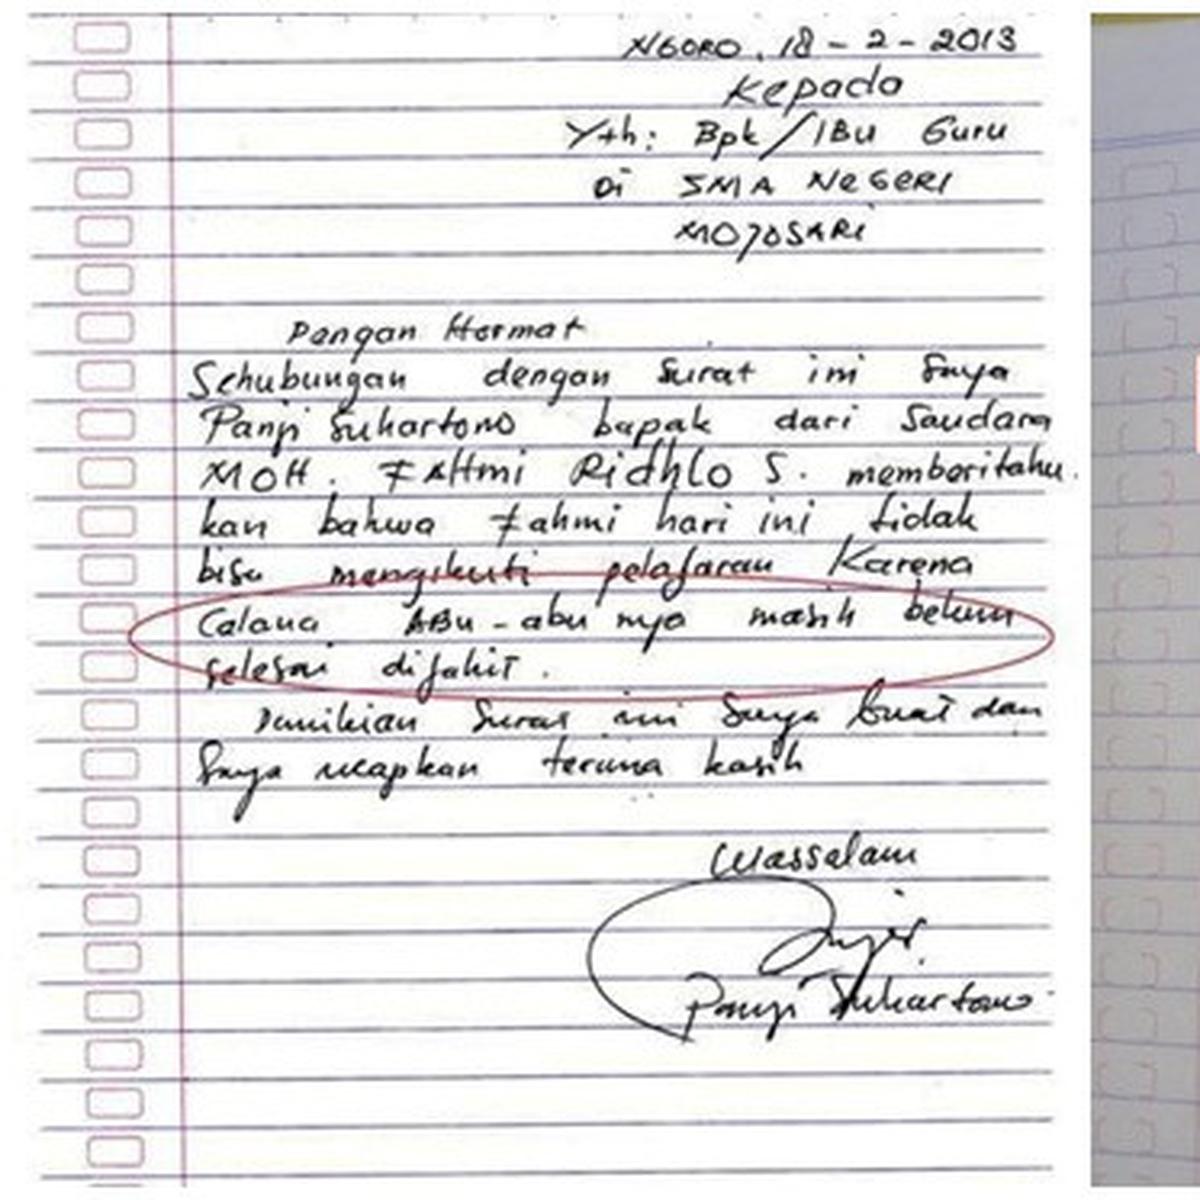 NGORO, 18-2-2013
Kepada
Yth: Bpk/IBu Guru
Di SMA NEGERI
MOJOSARI
Dengan Hormat
Sehubungan dengan Surat ini Saya
Panji Suhartono bapak dari Saudara
MOH. FAHmi Ridhlo S. memberitahu
kan bahwa Fahmi hari ini tidak
bisa mengikuti pelajaran Karena
Calana ABu-abu nya masih belum
selesai dijahit.
Demikian Surat ini Saya buat dan
Saya ucapkan terima kasih
Wassalam
Panji Suhartono